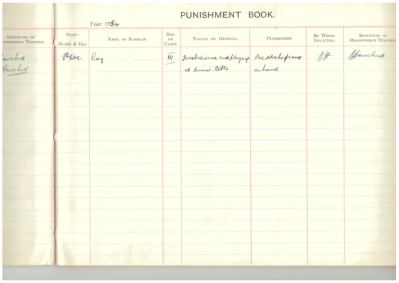 PUNISHMENT BOOK.
Year 1954
SIGNATURE OF
RESPONSIBLE TEACHER.
DATE:
MONTH & DAY
NAME OF SCHOLAR
STD.
OR
CLASS
NATURE OF OFFENCE.
PUNISHMENT
BY WHOM
INFLICTED.
SIGNATURE OF
RESPONSIBLE TEACHER
Dec. Roy III Disobedience and playing One stroke of cane
at dinner table on hand